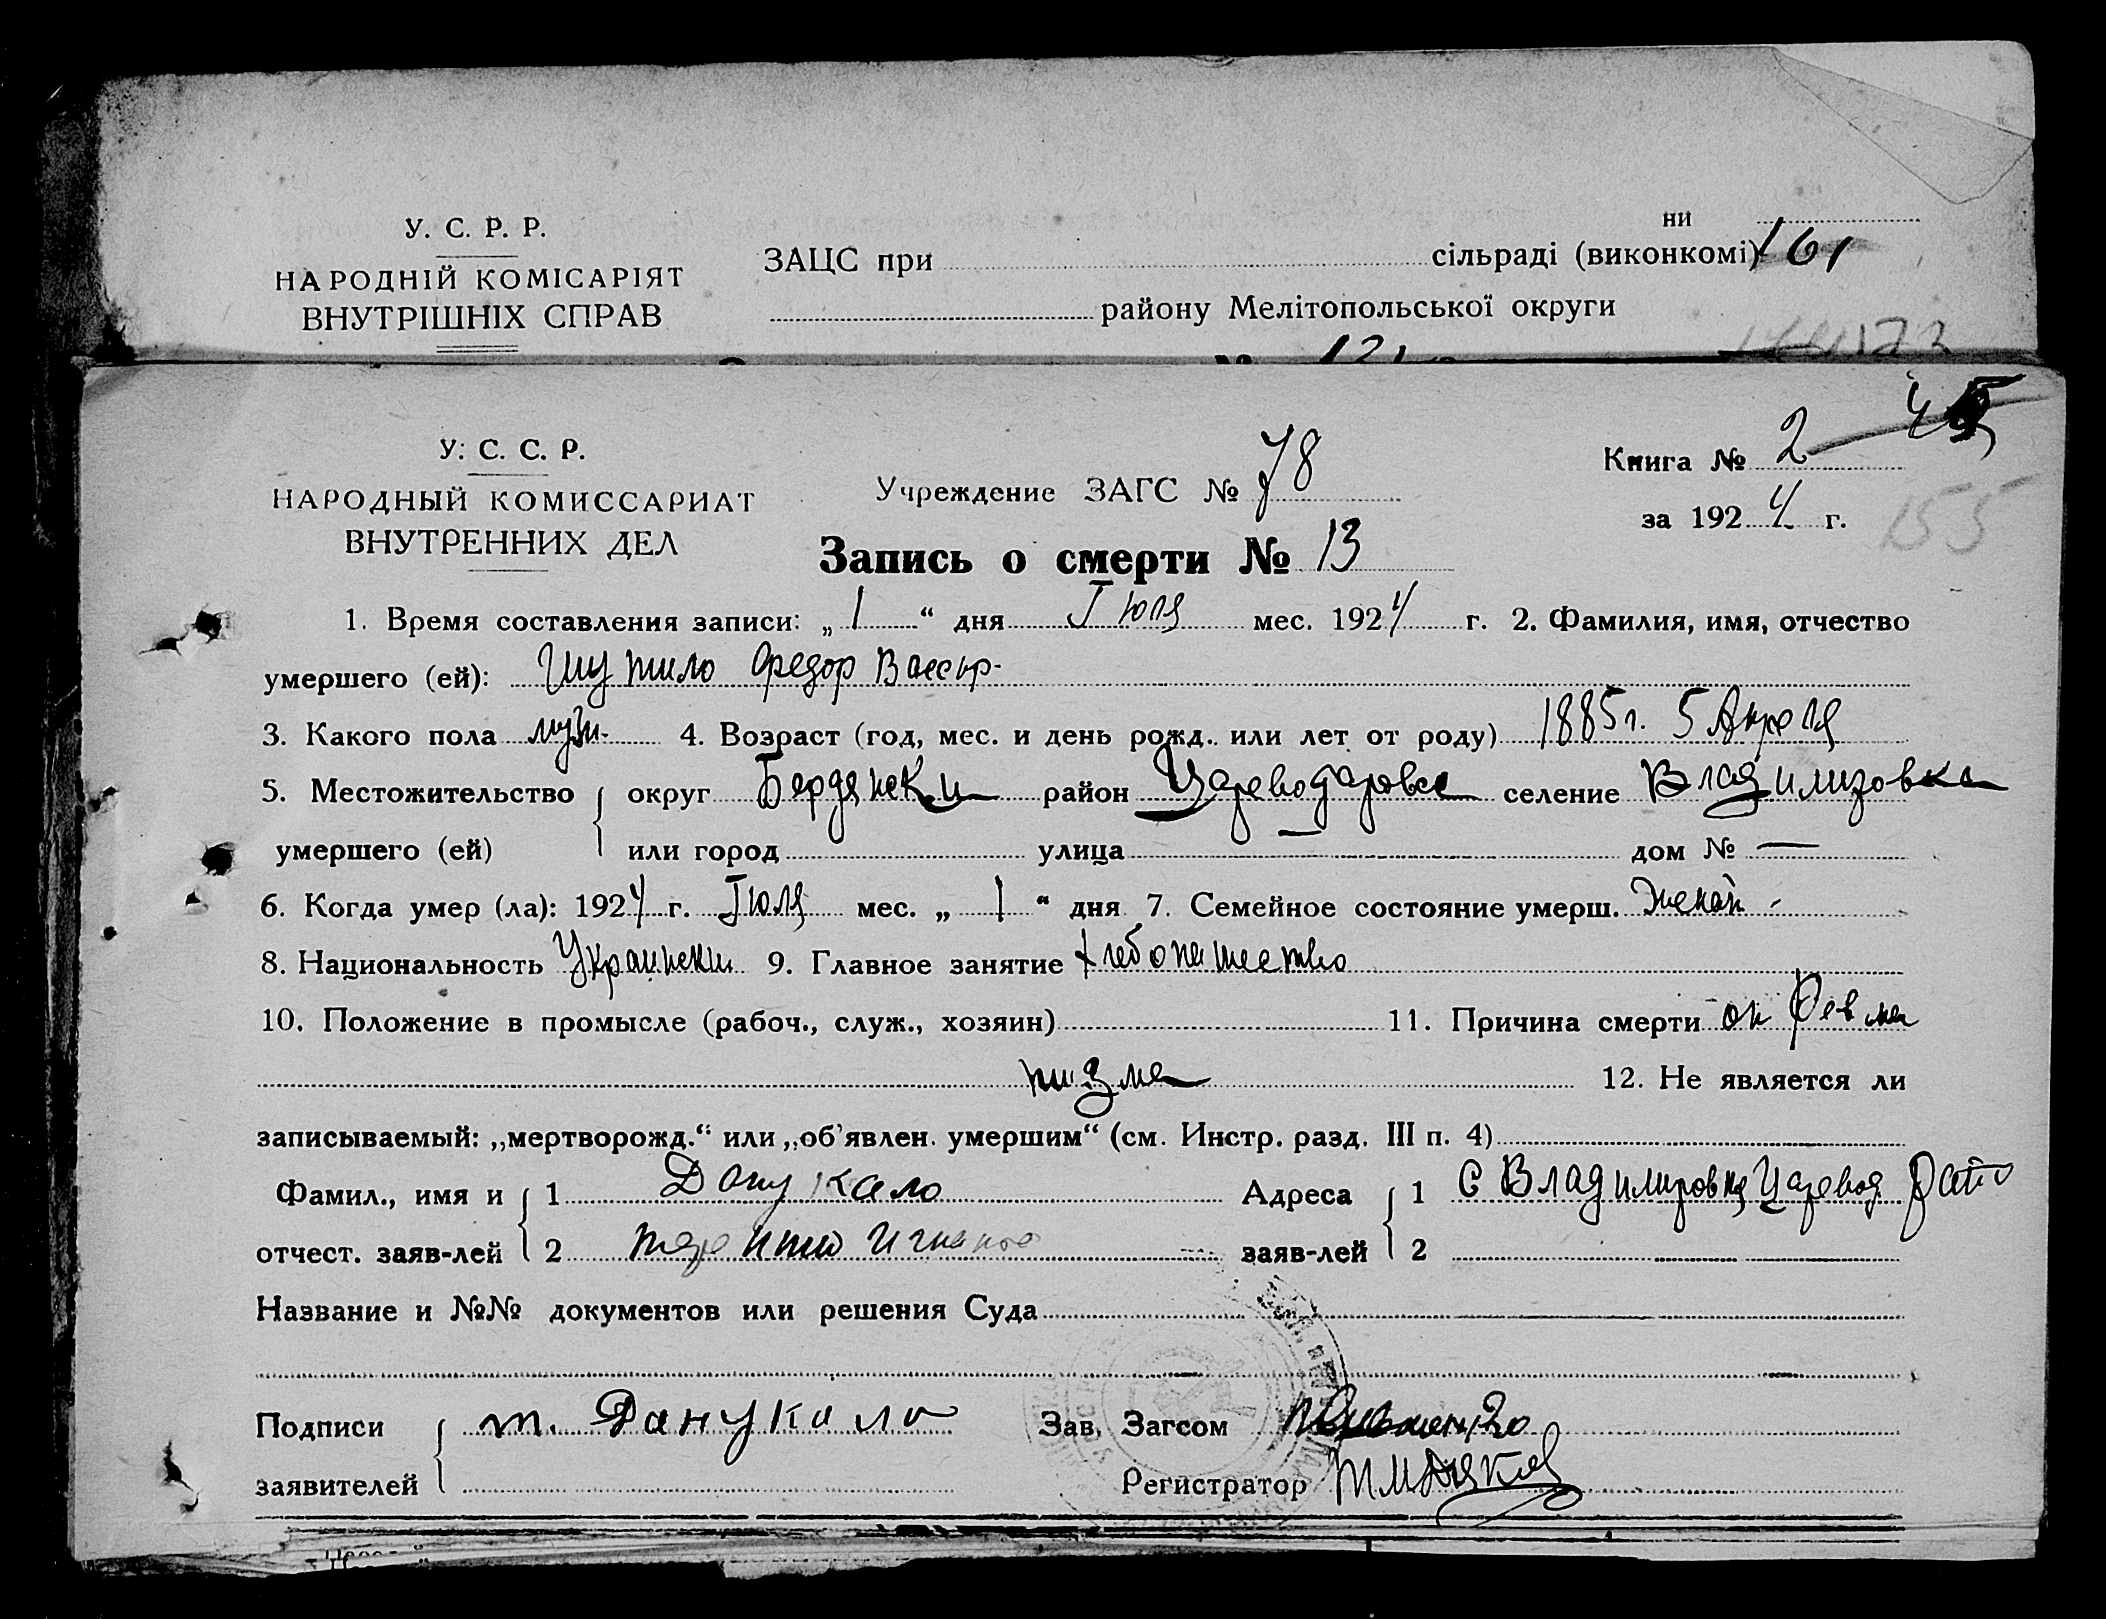 У. С. Р. Р.
НАРОДНІЙ КОМІСАРІЯТ
ВНУТРІШНІХ СПРАВ
ни
ЗАЦС при сільраді (виконкомі) 161
району Мелітопольської округи
У. С. С. Р.
НАРОДНЫЙ КОМИССАРИАТ
ВНУТРЕННИХ ДЕЛ
Учреждение ЗАГС № 78
Книга № 2
за 1924 г.
155
Запись о смерти № 13
1. Время составления записи: „ 1 “ дня Июля мес. 1924 г. 2. Фамилия, имя, отчество
умершего (ей): Шутило Федор
3. Какого пола муж. 4. Возраст (год, мес. и день рожд. или лет от роду) 1885 г. 5 Апреля
5. Местожительство округ Бердянски район Цареводаровск селение Владимировка
умершего (ей) или город улица — дом № —
6. Когда умер (ла): 1924 г. Июля мес. „ 1 “ дня 7. Семейное состояние умерш. женат
8. Национальность Украински 9. Главное занятие хлебопашество
10. Положение в промысле (рабоч., служ., хозяин) 11. Причина смерти от Ревма
тизма 12. Не является ли
записываемый: „мертворожд.“ или „об’явлен. умершим“ (см. Инстр. разд. III п. 4)
Фамил., имя и 1 Донукало Адреса 1 С Владимировка Царевод
отчест. заяв-лей 2 заяв-лей 2
Название и №№ документов или решения Суда
Подписи т. Данукало Зав. Загсом
заявителей Регистратор